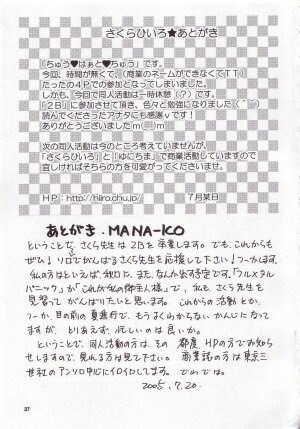 さくらひいろ★あとがき
「ちゅう♥はぁと♥ちゅう」です。
今回、時間が無くて、（商業のネームができなくてＴＴ）
たったの４Ｐでの参加となってしまいました。
しかも、今回で同人活動は一時休憩（？）です。
「２Ｂ」に参加させて頂き、色々と勉強になりました（＾＾）
読んでくださったアナタにも感謝ｖです！
ありがとうございましたｍ（＿）ｍ
次の同人活動は今のところ考えていませんが、
「さくらひいろ」と「ゆにちま」で商業活動していますので
宜しければそちらの方を可愛がってくださいませ。
ＨＰ：http://hiiro.chu.jp/ ７月某日
あとがき・MANA-KO
ということで、さくら先生は２Ｂを卒業します。でも、これからも
ぜひ！ソロでがんばるさくら先生を応援して下さい！つーかします。
私の方はといえば、秋口に、また、なんか出す予定です。「フルメタル
パニック」が「これが私の御主人様」で、私も、さくら先生を
見習って がんばりたいと思います。これからの活動とか、
つーか、目の前の夏進行で、もうまくわからないかんじになって
ますが、とりあえず、忙しいのは良いか。
ということで、同人活動の方は、その都度 HPの方でお知ら
せしますので、見れる方は見て下さい。商業誌の方は東京三
世社のアンソロ中心にイロイロしてます。でわでは。
2005.7.20.
37